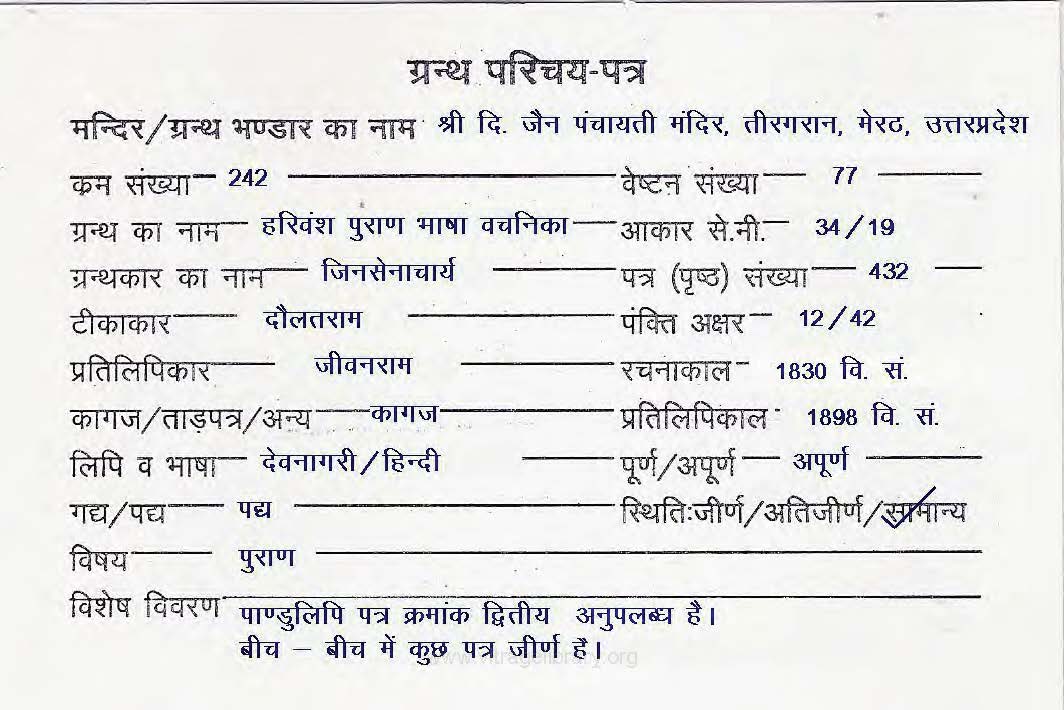 ग्रन्थ परिचय-पत्र
मन्दिर/ग्रन्थ भण्डार का नाम श्री दि. जैन पंचायती मंदिर, तीरगरान, मेरठ, उत्तरप्रदेश
क्रम संख्या 242 वेष्टन संख्या 77
ग्रन्थ का नाम हरिवंश पुराण भाषा वचनिका आकार से.मी. 34/19
ग्रन्थकार का नाम जिनसेनाचार्य पत्र (पृष्ठ) संख्या 432
टीकाकार दौलतराम पंक्ति अक्षर 12/42
प्रतिलिपिकार जीवनराम रचनाकाल 1830 वि. सं.
कागज/ताड़पत्र/अन्य कागज प्रतिलिपिकाल 1898 वि. सं.
लिपि व भाषा देवनागरी/हिन्दी पूर्ण/अपूर्ण अपूर्ण
गद्य/पद्य पद्य स्थितिःजीर्ण/अतिजीर्ण/सामान्य
विषय पुराण
विशेष विवरण पाण्डुलिपि पत्र क्रमांक द्वितीय अनुपलब्ध है।
बीच – बीच में कुछ पत्र जीर्ण है।